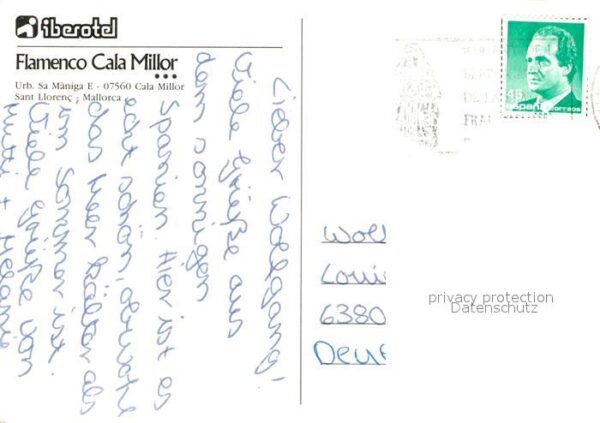 iberotel
Flamenco Cala Millor
Urb. Sa Màniga E - 07560 Cala Millor
Sant Llorenç - Mallorca
Lieber Wolfgang!
Viele Grüße aus
dem sonnigen
Spanien. Hier ist es
echt schön, obwohl
das Meer kälter als
im Sommer ist.
Viele Grüße von
Mutti + Melanie
45
españa correos
Woll
Loui
6380
Deut
privacy protection
Datenschutz